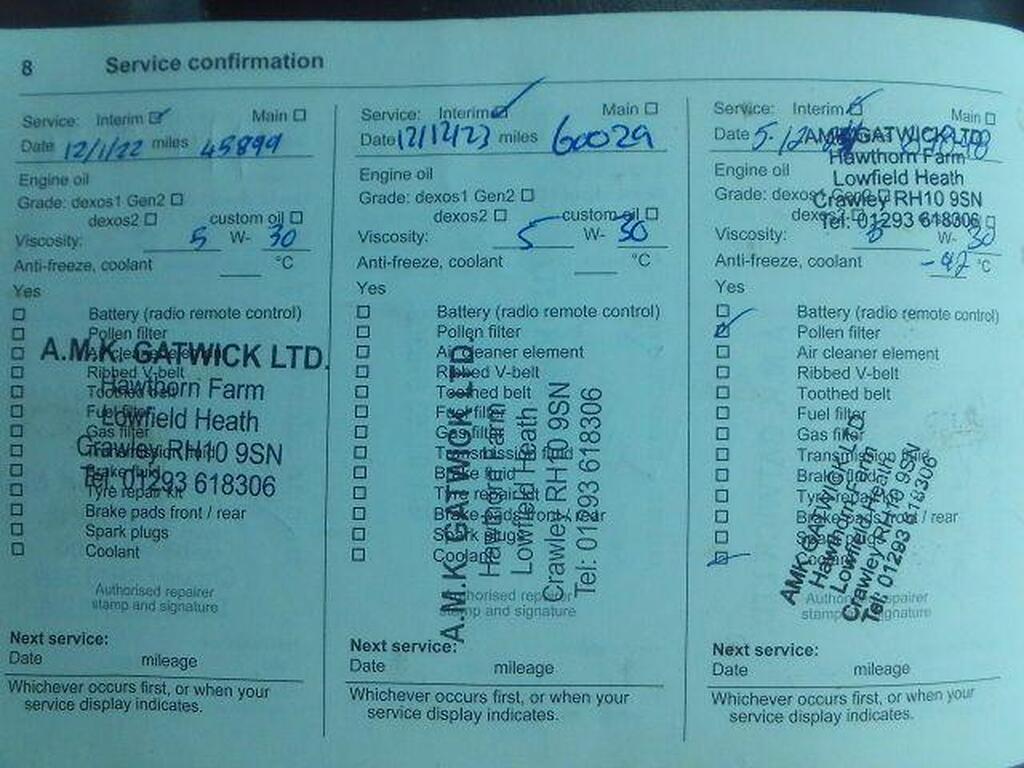 8 Service confirmation
Service: Interim ☑ Main ☐
Date 12/1/22 miles 45899
Engine oil
Grade: dexos1 Gen2 ☐
dexos2 ☐ custom oil ☐
Viscosity: 5 W- 30
Anti-freeze, coolant ____ °C
Yes
☐ Battery (radio remote control)
☐ Pollen filter
☐ Air cleaner element
☐ Ribbed V-belt
☐ Toothed belt
☐ Fuel filter
☐ Gas filter
☐ Transmission fluid
☐ Brake fluid
☐ Tyre repair kit
☐ Brake pads front / rear
☐ Spark plugs
☐ Coolant
A.M.K. GATWICK LTD.
Hawthorn Farm
Lowfield Heath
Crawley RH10 9SN
Tel: 01293 618306
Authorised repairer
stamp and signature
Next service:
Date mileage
Whichever occurs first, or when your
service display indicates.
Service: Interim ☑ Main ☐
Date 12/12/23 miles 60029
Engine oil
Grade: dexos1 Gen2 ☐
dexos2 ☐ custom oil ☐
Viscosity: 5 W- 30
Anti-freeze, coolant ____ °C
Yes
☐ Battery (radio remote control)
☐ Pollen filter
☐ Air cleaner element
☐ Ribbed V-belt
☐ Toothed belt
☐ Fuel filter
☐ Gas filter
☐ Transmission fluid
☐ Brake fluid
☐ Tyre repair kit
☐ Brake pads front / rear
☐ Spark plugs
☐ Coolant
A.M.K. GATWICK LTD.
Hawthorn Farm
Lowfield Heath
Crawley RH10 9SN
Tel: 01293 618306
Authorised repairer
stamp and signature
Next service:
Date mileage
Whichever occurs first, or when your
service display indicates.
Service: Interim ☑ Main ☐
Date 5-12
AMK GATWICK LTD
Hawthorn Farm
Lowfield Heath
Crawley RH10 9SN
Tel: 01293 618306
Engine oil
Grade: dexos1 Gen2 ☐
dexos2 ☐
Viscosity: 5 W- 30
Anti-freeze, coolant -42 °C
Yes
☐ Battery (radio remote control)
☑ Pollen filter
☐ Air cleaner element
☐ Ribbed V-belt
☐ Toothed belt
☐ Fuel filter
☐ Gas filter
☐ Transmission fluid
☐ Brake fluid
☐ Tyre repair kit
☐ Brake pads front / rear
☐ Spark plugs
☑ Coolant
AMK GATWICK LTD
Hawthorn Farm
Lowfield Heath
Crawley RH10 9SN
Tel: 01293 618306
Authorised repairer
stamp and signature
Next service:
Date mileage
Whichever occurs first, or when your
service display indicates.